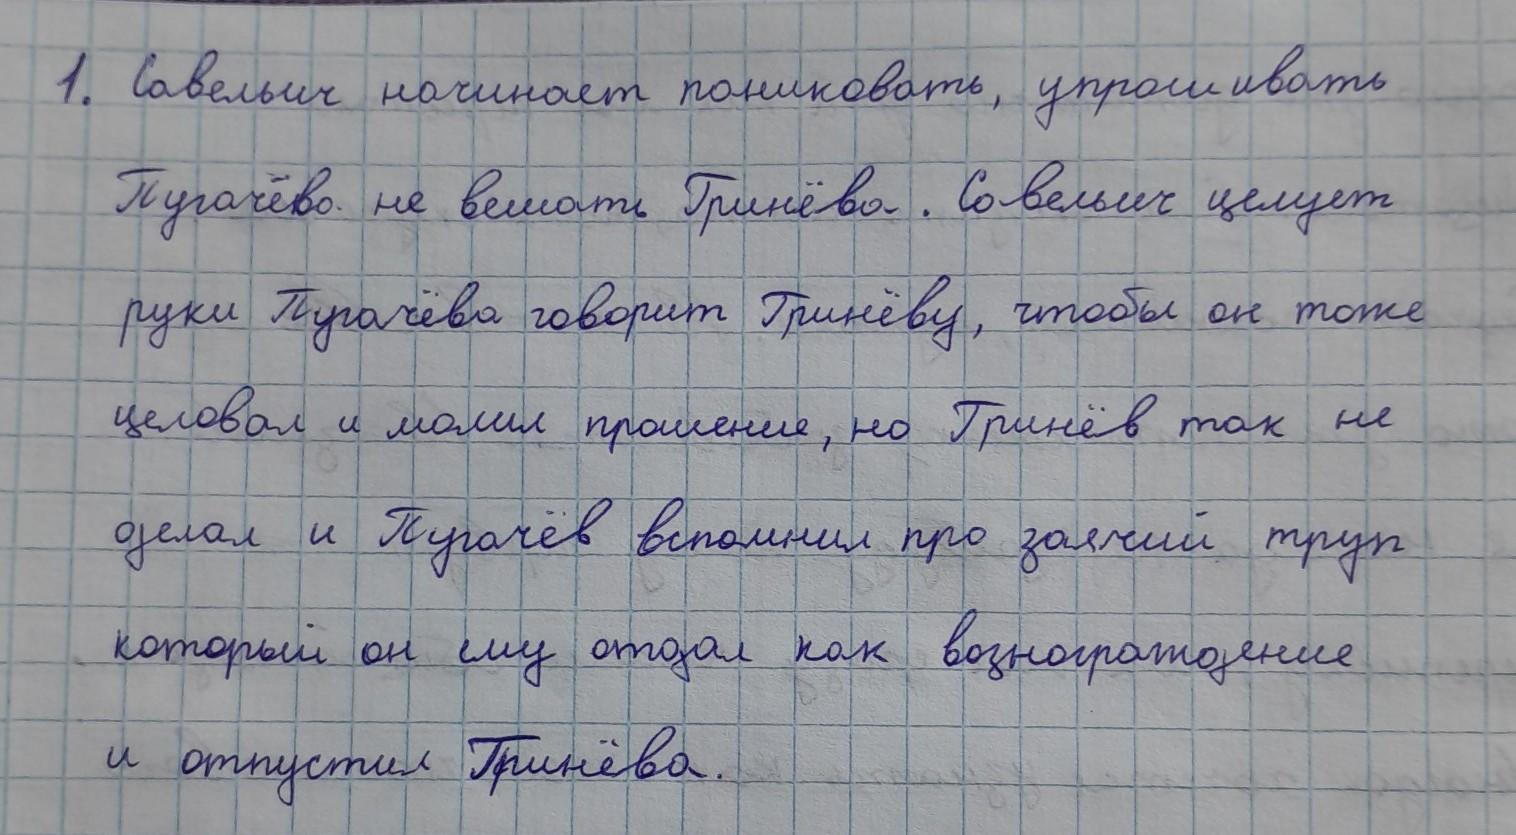 1. Савельич начинает паниковать, упрашивать
Пугачёва не вешать Гринёва. Савельич целует
руки Пугачёва говорит Гринёву, чтобы он тоже
целовал и молил прошение, но Гринёв так не
делал и Пугачёв вспомнил про заячий труп
который он ему отдал как вознограждение
и отпустил Гринёва.